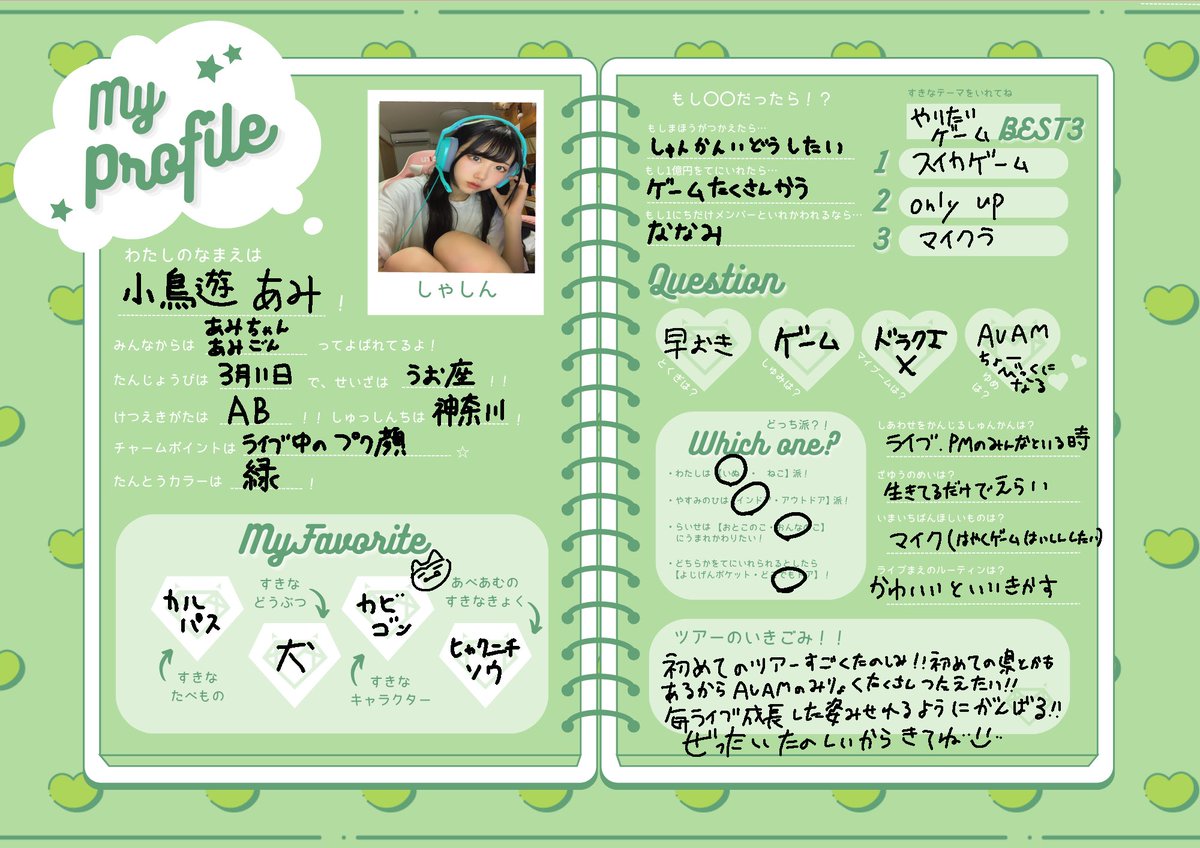 My
Profile
しゃしん
わたしのなまえは
小鳥遊 あみ !
みんなからは あみちゃん
あみごん ってよばれてるよ!
たんじょうびは 3月11日 で、せいざは うお座 !!
けつえきがたは AB !! しゅっしんちは 神奈川 !
チャームポイントは ライブ中のプク顔 ☆
たんとうカラーは 緑 !
MyFavorite
カル
パス
すきな
たべもの
すきな
どうぶつ
犬
カビ
ゴン
すきな
キャラクター
あべあむの
すきなきょく
ヒャクニチ
ソウ
もし〇〇だったら!?
もしまほうがつかえたら…
しゅんかんいどうしたい
もし1億円をてにいれたら…
ゲームたくさんかう
もし1にちだけメンバーといれかわれるなら…
ななみ
すきなテーマをいれてね
やりたい
ゲーム BEST3
1 スイカゲーム
2 only up
3 マイクラ
Question
早おき
とくぎは?
ゲーム
しゅみは?
ドラクエ
X
マイブームは?
AVAM
ちょーびっくに
なる
ゆめは?
どっち派?!
Which one?
・わたしは【いぬ・ねこ】派!
・やすみのひは【インドア・アウトドア】派!
・らいせは【おとこのこ・おんなのこ】
にうまれかわりたい!
・どちらかをてにいれられるとしたら
【よじげんポケット・どこでもドア】!
しあわせをかんじるしゅんかんは?
ライブ.PMのみんなといる時
ざゆうのめいは?
生きてるだけでえらい
いまいちばんほしいものは?
マイク(はやくゲームはいしんしたい)
ライブまえのルーティンは?
かわいいといいきかす
ツアーのいきごみ!!
初めてのツアーすごくたのしみ!!初めての県とかも
あるからAVAMのみりょくたくさんつたえたい!!
毎ライブ成長した姿みせれるようにがんばる!!
ぜったいたのしいからきてね